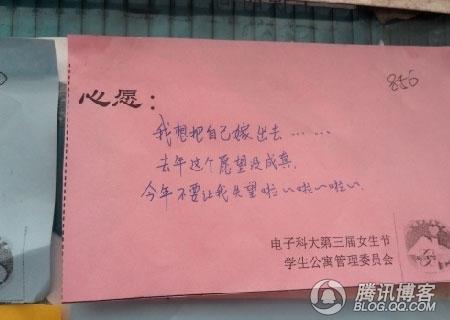 856
心愿：
我想把自己嫁出去……
去年这个愿望没成真.
今年不要让我失望啦~啦~啦~.
电子科大第三届女生节
学生公寓管理委员会
腾讯博客
BLOG.QQ.COM